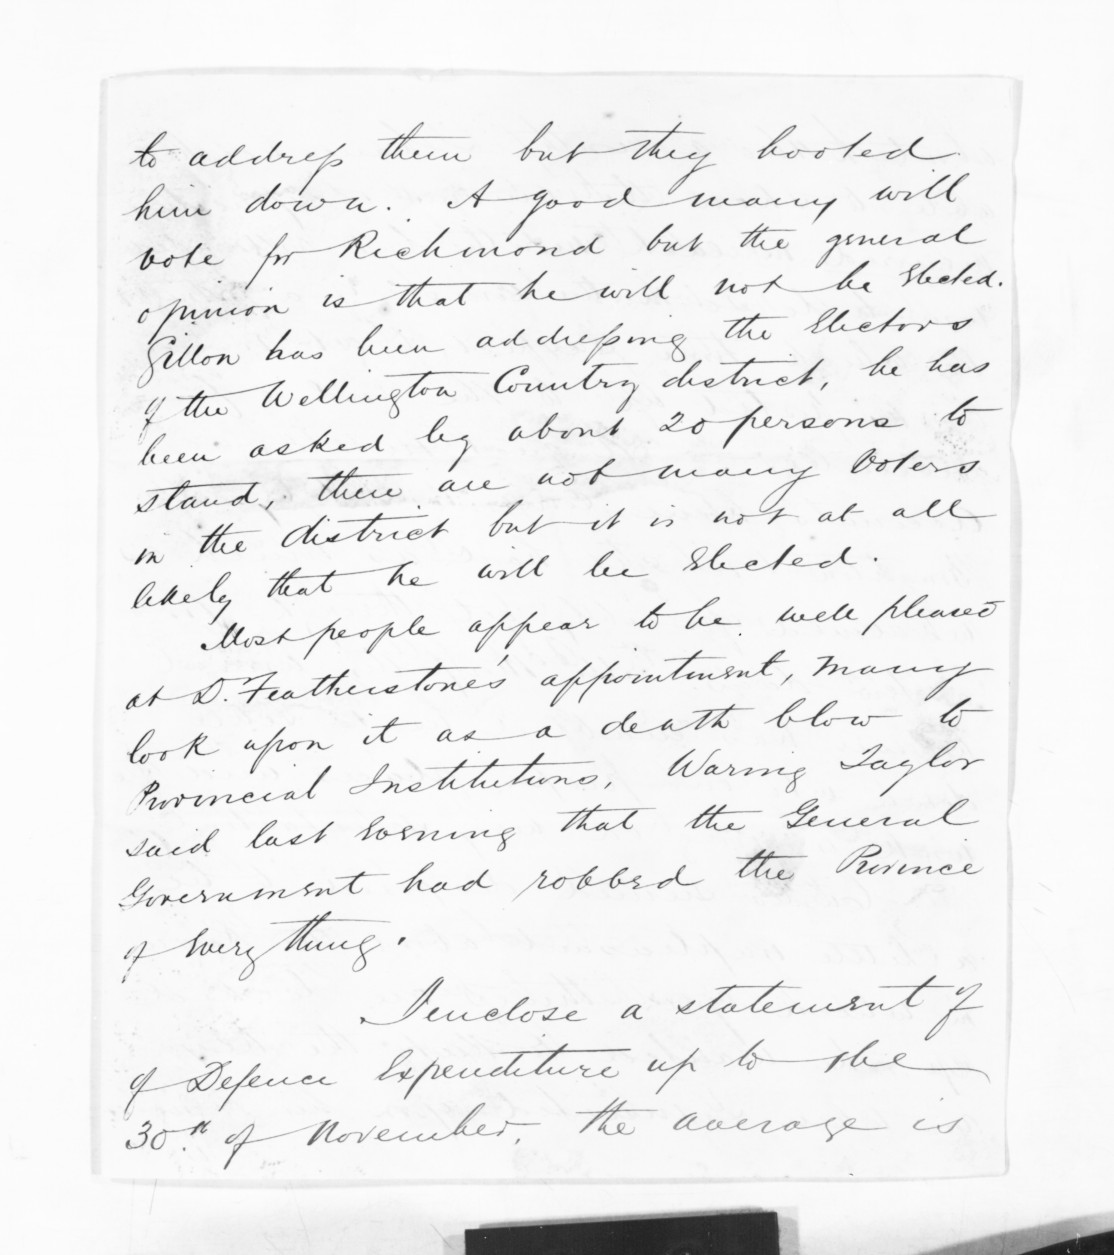 to address them but they hooted
him down. A good many will
vote for Richmond but the general
opinion is that he will not be Elected.
Gillon has been addressing the Electors
of the Wellington Country district, he has
been asked by about 20 persons to
stand, there are not many Voters
in the district but it is not at all
likely that he will be Elected.
Most people appear to be well pleased
at D. Featherstone's appointment, many
look upon it as a death blow to
Provincial Institutions, Waring Taylor
said last Evening that the General
Government had robbed the Province
of Everything.
I enclose a statement of
of Defence Expenditure up to the
30th of November, the average is